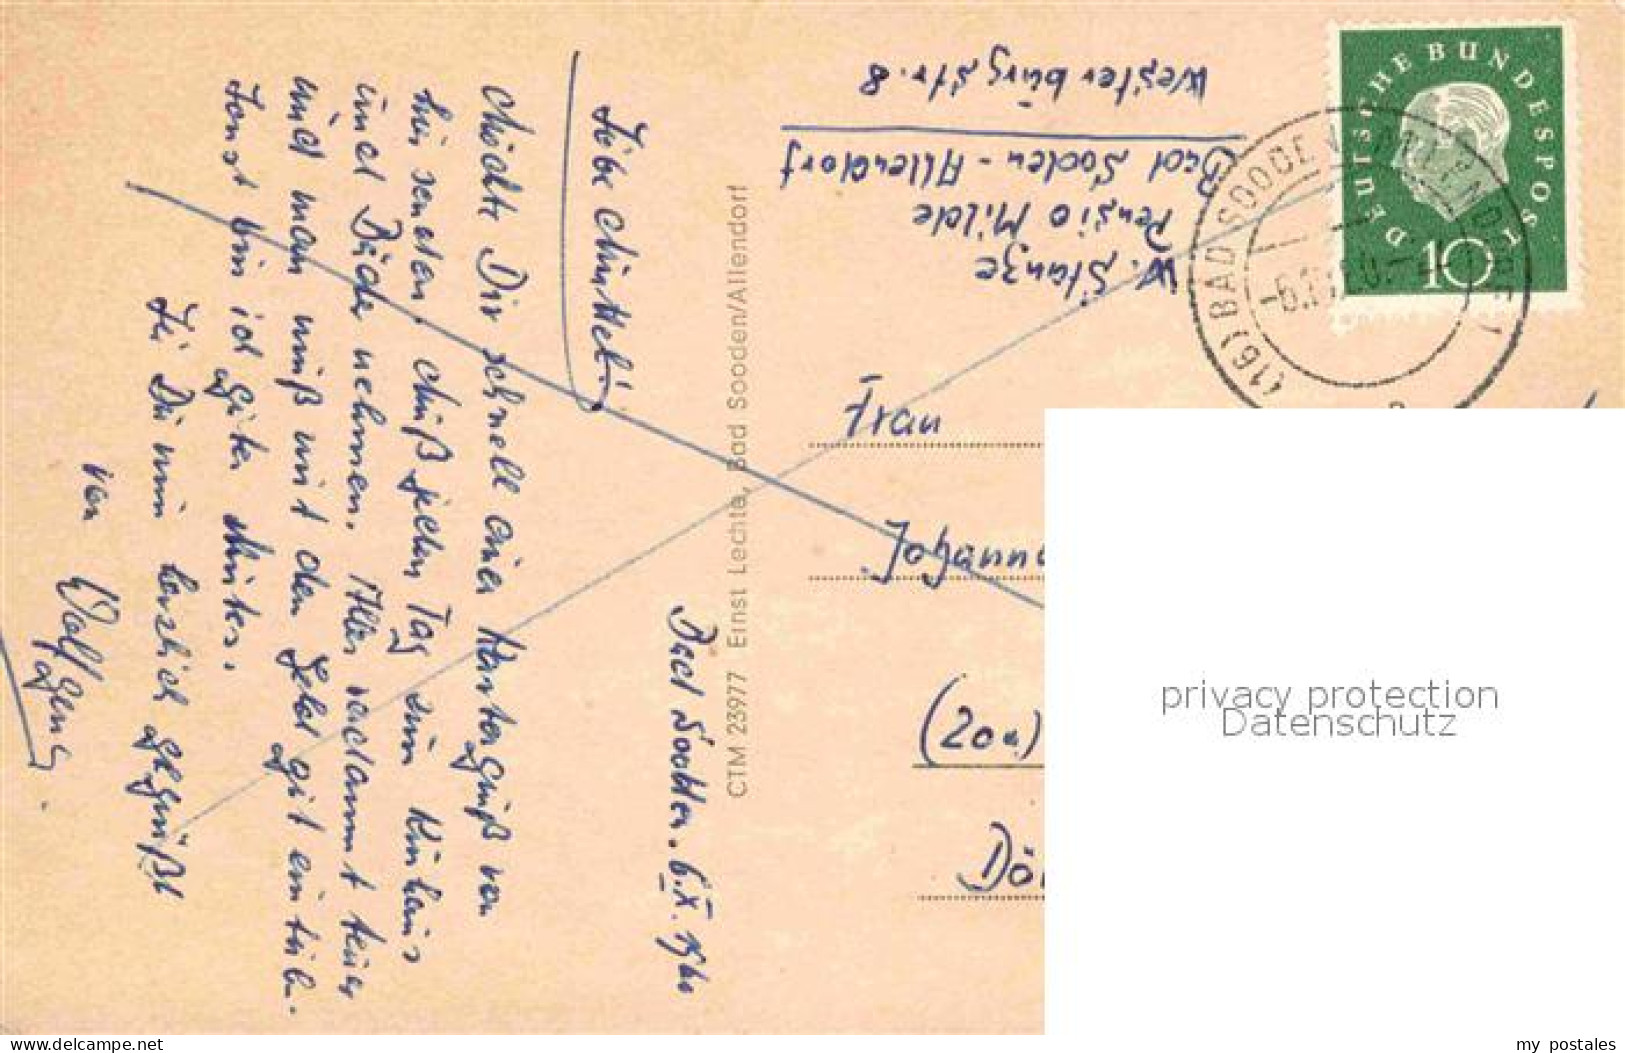 Bad Sooden. 6.X.1960
Liebe Mutter!
Möchte Dir schnell einen Kartengruß von
hier senden. Muß jeden Tag zum Kurhaus
und Bäder nehmen. Alles verdammt teuer
und man muß mit dem Geld gut einteilen.
Sonst bin ich guten Mutes.
Sei Du nun herzlich gegrüßt
von Wolfgang.
CTM 23977 Ernst Lechte, Bad Sooden/Allendorf
W. Stange
Pensio Milde
Bad Sooden - Allendorf
Westerburgstr. 8
DEUTSCHE BUNDESPOST
10
(16) BAD SOODEN-ALLENDORF
Frau
(20a)
privacy protection
Datenschutz
www.delcampe.net
my_postales